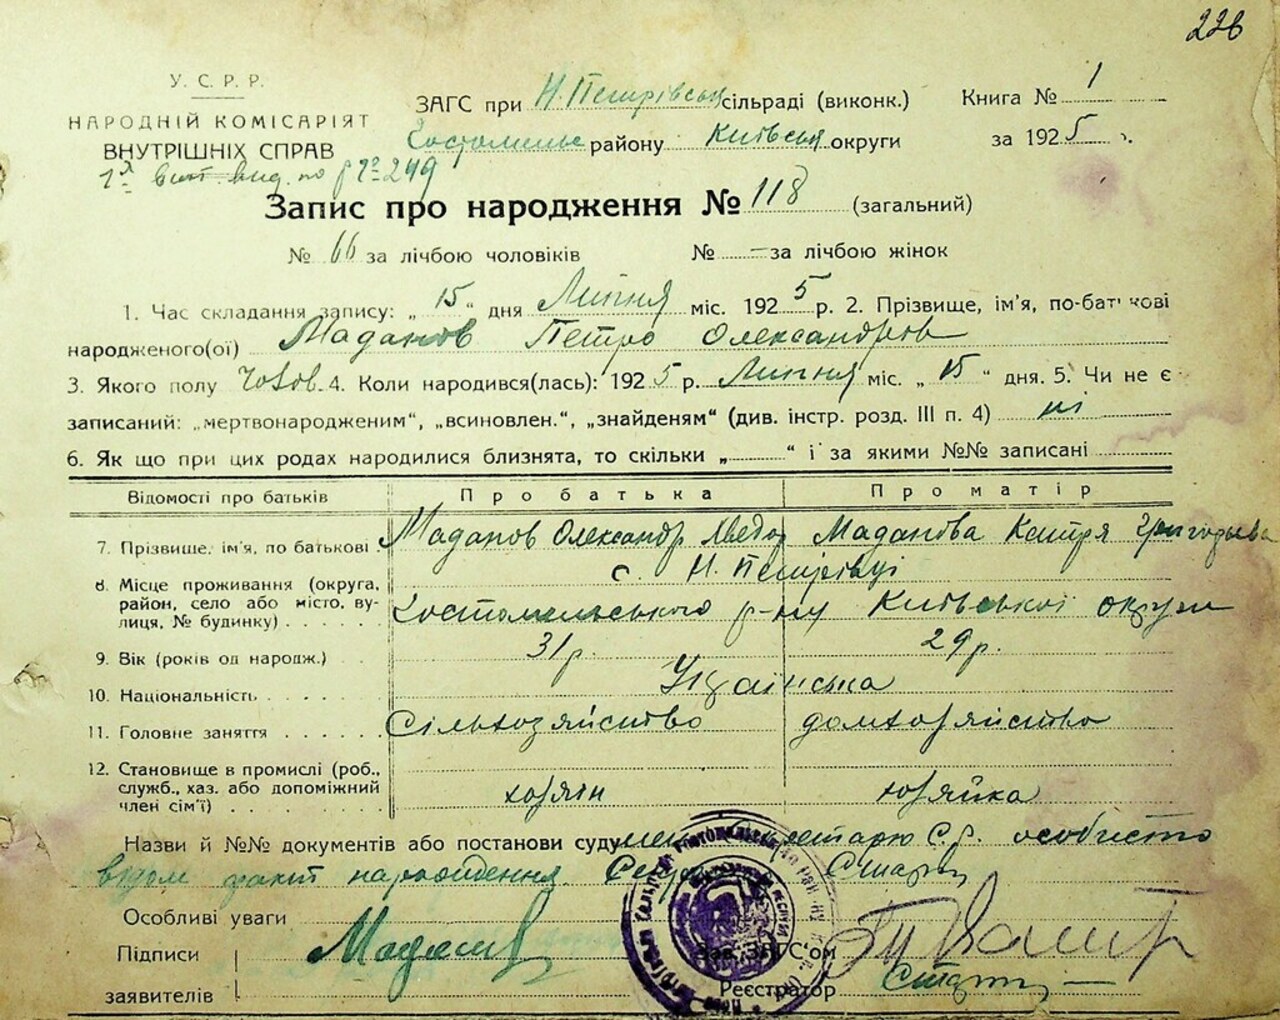 226
У. С. Р. Р.
НАРОДНІЙ КОМІСАРІЯТ
ВНУТРІШНІХ СПРАВ
ЗАГС при Н. Петрівськ сільраді (виконк.) Книга № 1
Гостомельс району Київськ округи за 1925 р.
вид. по № 249
Запис про народження № 118 (загальний)
№ 66 за лічбою чоловіків № — за лічбою жінок
1. Час складання запису: „15“ дня Липня міс. 1925 р. 2. Прізвище, ім'я, по-батькові
народженого(ої) Маданов Петро Олександров
3. Якого полу чолов. 4. Коли народився(лась): 1925 р. Липня міс. „15“ дня. 5. Чи не є
записаний: „мертвонародженим“, „всиновлен.“, „знайденям“ (див. інстр. розд. III п. 4) ні
6. Як що при цих родах народилися близнята, то скільки „ “ і за якими №№ записані
Відомості про батьків Про батька Про матір
7. Прізвище, ім'я, по батькові Маданов Олександр Хведор Маданова Катря Григорьева
с. Н. Петрівці
8. Місце проживання (округа,
район, село або місто, ву-
лиця, № будинку) Гостомельського р-ну Київської округи
9. Вік (років од народж.) 31 р. 29 р.
10. Національність Українська
11. Головне заняття Сільхозяйство домхозяйство
12. Становище в промислі (роб.,
служб., хаз. або допоміжний
член сім'ї) хозяїн хозяйка
Назви й №№ документів або постанови суду секретарю С.Р. особисто
відом факт народження.
Особливі уваги
Підписи Маданов Зав. ЗАГС'ом
заявителів Реєстратор